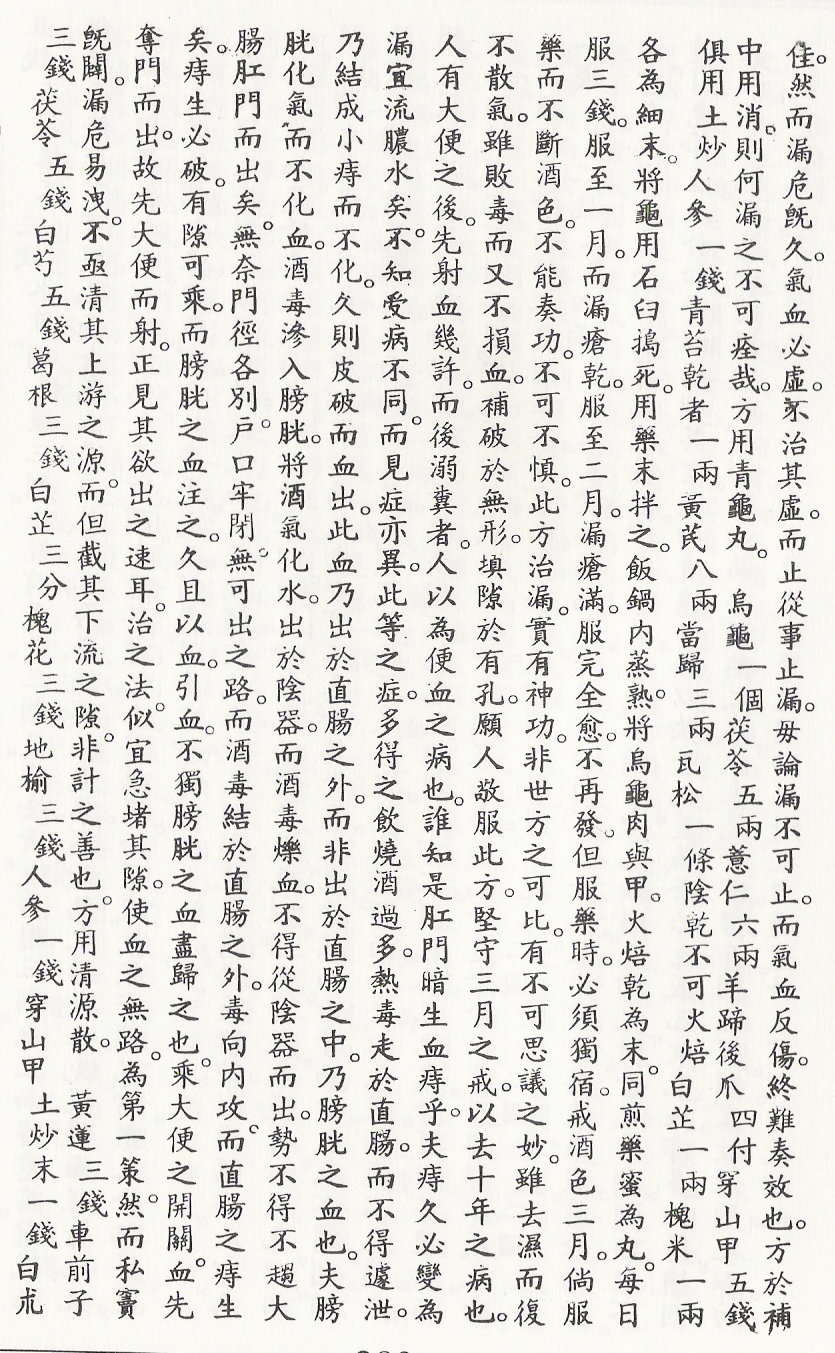 佳。然而漏危旣久。氣血必虛。不治其虛。而止從事止漏。毋論漏不可止。而氣血反傷。終難奏效也。方於補
中用消。則何漏之不可痊哉。方用青龜丸。 烏龜一個茯苓 五兩薏仁 六兩羊蹄後爪 四付穿山甲 五錢
俱用土炒人參 一錢青苔乾者一兩黃芪八兩當歸 三兩瓦松一條陰乾不可火焙白芷一兩槐米一兩
各為細末。將龜用石臼搗死。用藥末拌之。飯鍋内蒸熟。將烏龜肉與甲。火焙乾為末。同煎藥蜜為丸。每日
服三錢。服至一月。而漏瘡乾。服至二月。漏瘡滿。服完全愈。不再發。但服藥時。必須獨宿。戒酒色三月。倘服
藥而不斷酒色。不能奏功。不可不慎。此方治漏。實有神功。非世方之可比。有不可思議之妙。雖去濕而復
不散氣。雖敗毒而又不損血。補破於無形。填隙於有孔。願人敬服此方。堅守三月之戒。以去十年之病也。
人有大便之後。先射血幾許。而後溺糞者。人以為便血之病也。誰知是肛門暗生血痔乎。夫痔久必變為
漏宜流膿水矣。不知愛病不同。而見症亦異。此等之症。多得之飲燒酒過多。熱毒走於直腸。而不得遽泄。
乃結成小痔而不化。久則皮破而血出。此血乃出於直腸之外。而非出於直腸之中。乃膀胱之血也。夫膀
胱化氣。而不化血。酒毒滲入膀胱。將酒氣化水。出於陰器。而酒毒爍血。不得從陰器而出。勢不得不趨大
腸肛門而出矣。無奈門徑各別。戶口牢閉。無可出之路。而酒毒結於直腸之外。毒向内攻。而直腸之痔生
矣。痔生必破。有隙可乘。而膀胱之血注之。久且以血。引血。不獨膀胱之血盡歸之也。乘大便之開關。血先
奪門而出。故先大便而射。正見其欲出之速耳。治之法。似宜急堵其隙。使血之無路。為第一策。然而私竇
旣闢。漏危易洩。不亟清其上游之源。而但截其下流之隙。非計之善也。方用清源散。 黃蓮 三錢車前子
三錢茯苓 五錢白芍 五錢葛根 三錢白芷 三分槐花 三錢地榆 三錢人參 一錢穿山甲 土炒末一錢白朮